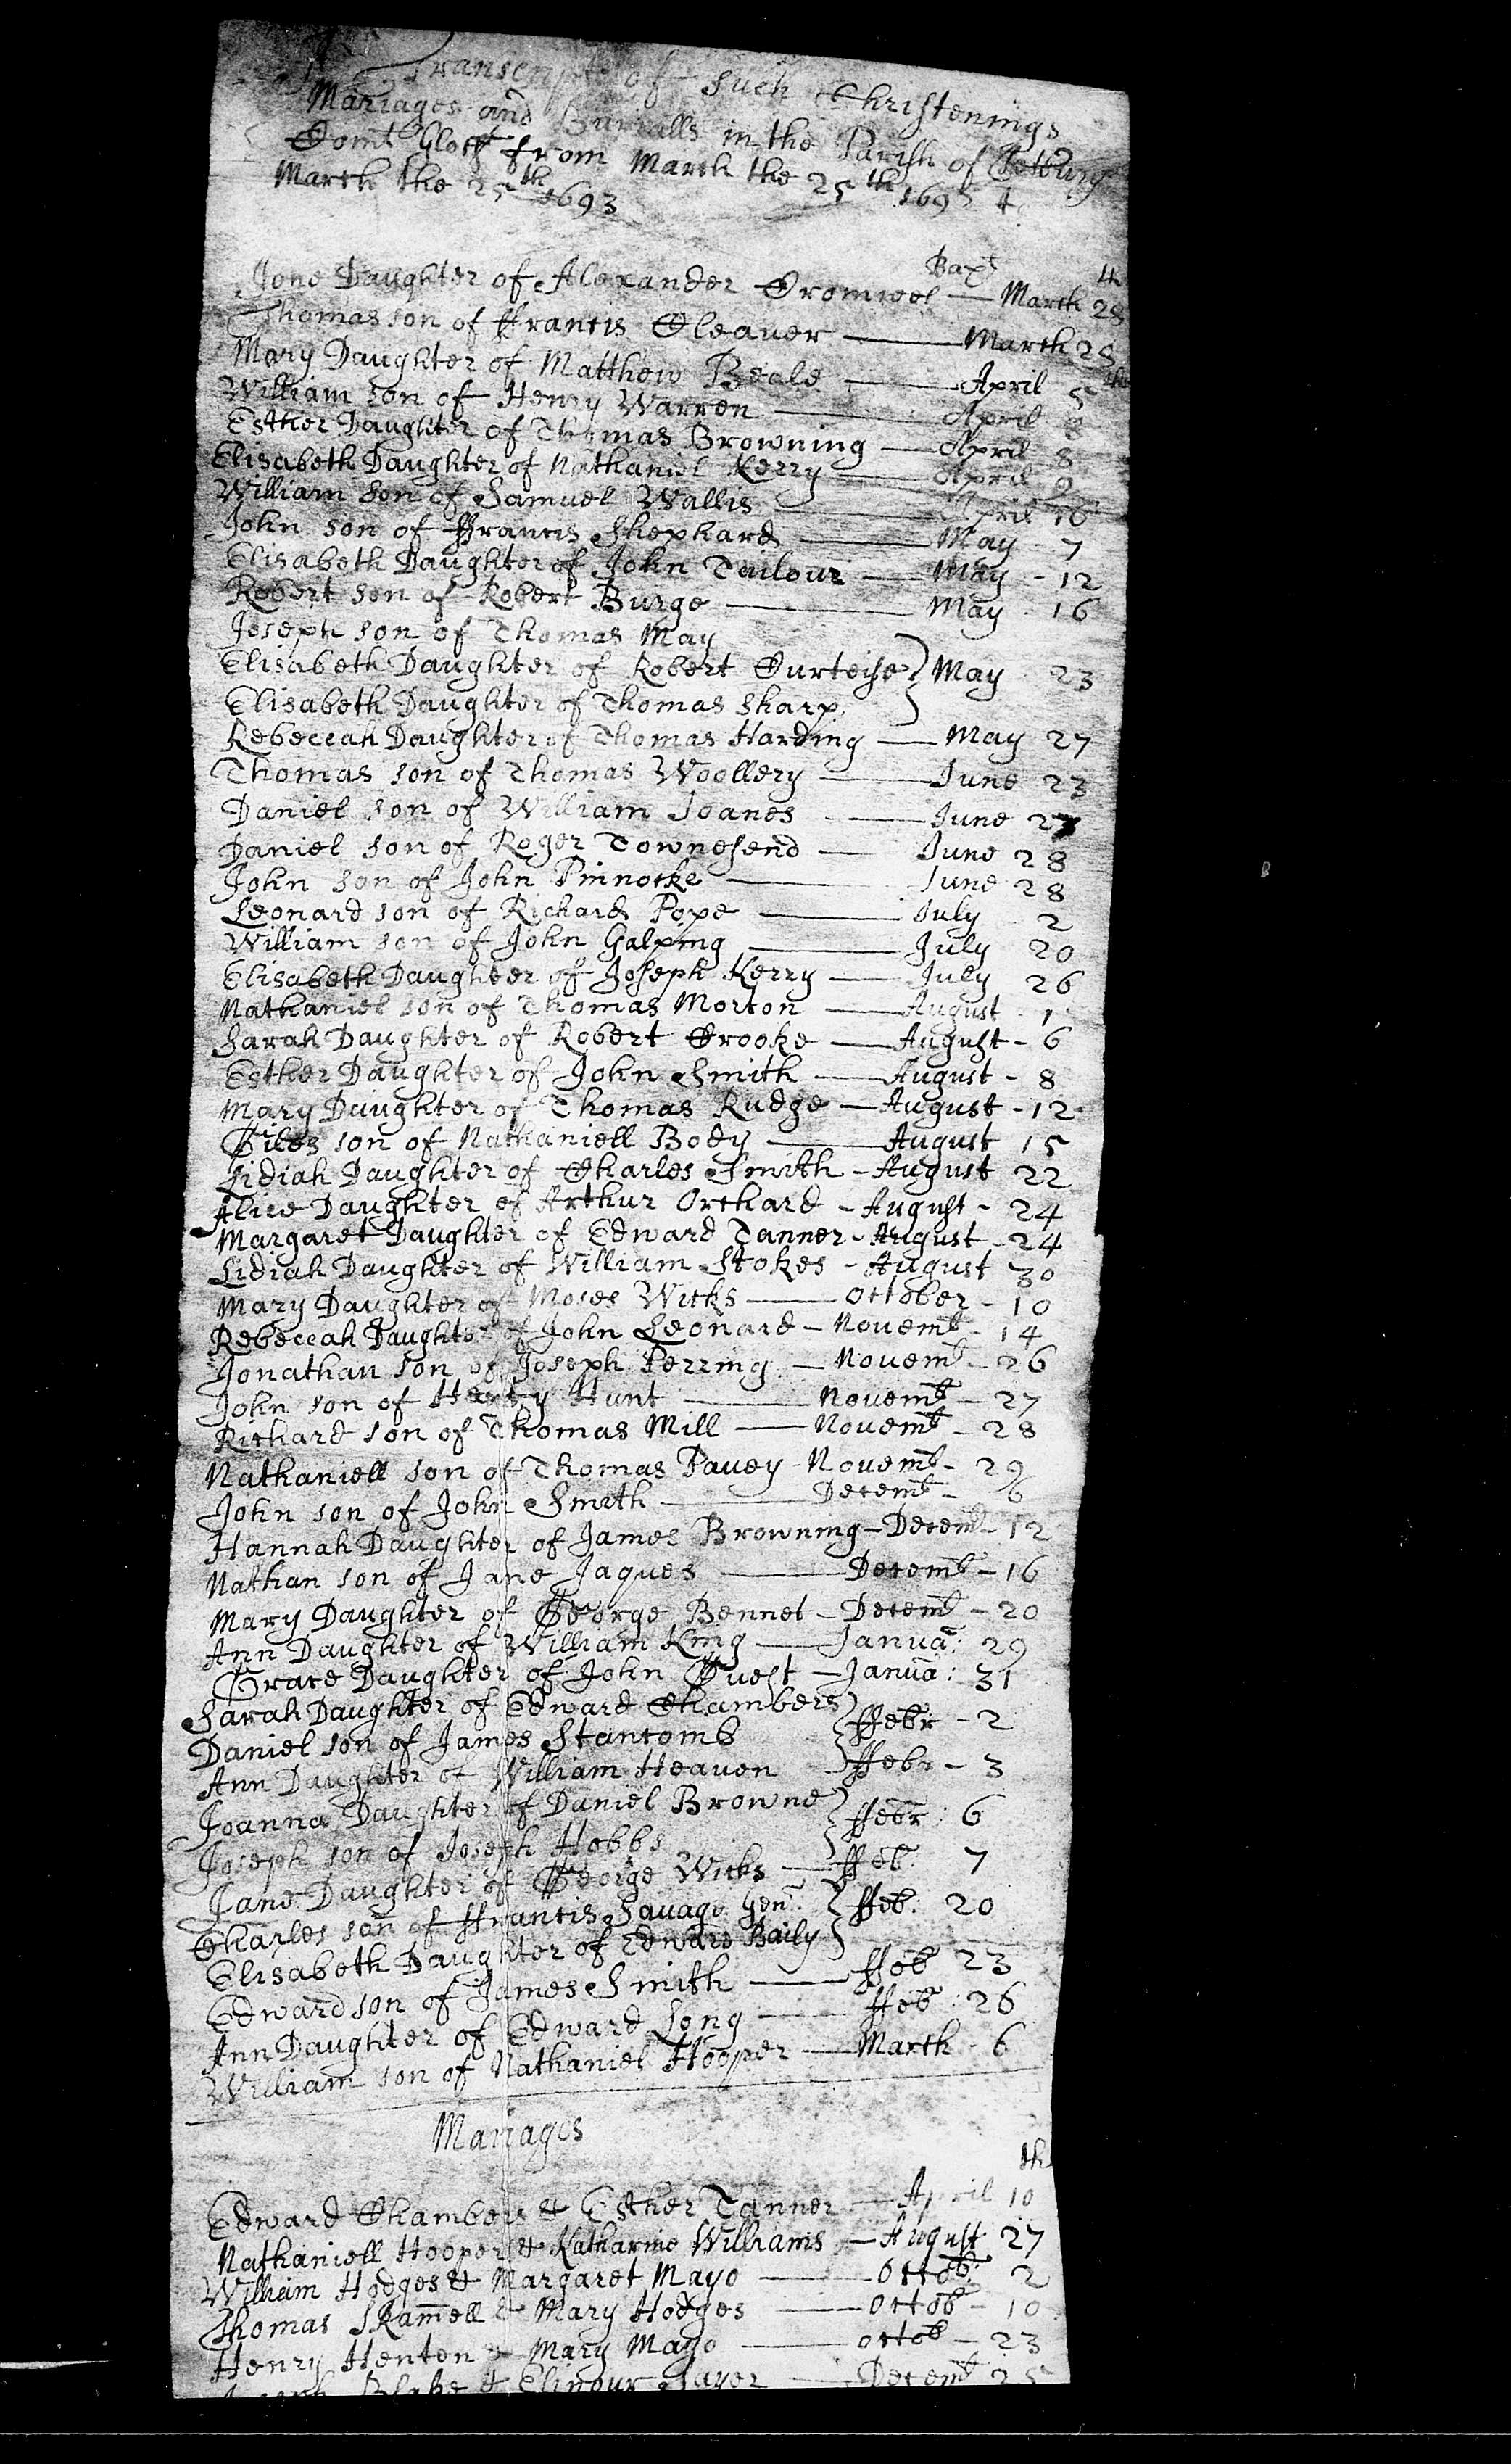 Transcript of such Christenings
Mariages and Burialls in the Parish of Tetbury
Comt Glost from March the 25th 1692 to
March the 25th 1693
Bapt
Jone Daughter of Alexander Cromwel — March 28th
Thomas son of Francis Cleaver — March 28
Mary Daughter of Matthew Beale — April 5th
William son of Henry Warren — April 8
Esther Daughter of Thomas Browning — April 8
Elisabeth Daughter of Nathaniel Kerry — April 9
William son of Samuel Wallis — April 16
John son of ffrancis Shephard — May - 7
Elisabeth Daughter of John Tailour — May - 12
Robert son of Robert Burge — May 16
Joseph son of Thomas May
Elisabeth Daughter of Robert Curteise } May 23
Elisabeth Daughter of Thomas Sharp
Rebeccah Daughter of Thomas Harding — May 27
Thomas son of Thomas Woollery — June 23
Daniel son of William Joanes — June 27
Daniel son of Roger Townesend — June 28
John son of John Pinnocke — June 28
Leonard son of Richard Pope — July 2
William son of John Galping — July 20
Elisabeth Daughter of Joseph Kerry — July 26
Nathaniel son of Thomas Morton — August 1
Sarah Daughter of Robert Crooke — August - 6
Esther Daughter of John Smith — August - 8
Mary Daughter of Thomas Rudge — August - 12
Giles son of Nathaniell Body — August 15
Lidiah Daughter of Charles Smith - August 22
Alice Daughter of Arthur Orchard - August - 24
Margaret Daughter of Edward Tanner - August - 24
Lidiah Daughter of William Stokes - August 30
Mary Daughter of Moses Wicks — October - 10
Rebeccah Daughter of John Leonard — Novemb - 14
Jonathan son of Joseph Perring — Novemb - 26
John son of Henry Hunt — Novemb — 27
Richard son of Thomas Mill — Novemb - 28
Nathaniell son of Thomas Pavey - Novemb - 29
John son of John Smith — Decemb - 6
Hannah Daughter of James Browning — Decemb - 12
Nathan son of Jane Jaques — Decemb - 16
Mary Daughter of George Bennet - Decemb - 20
Ann Daughter of William King — Janua: 29
Grace Daughter of John Guest — Janua: 31
Sarah Daughter of Edward Chambers
Daniel son of James Stancomb } ffebr - 2
Ann Daughter of William Heaven — ffebr - 3
Joanna Daughter of Daniel Browne
Joseph son of Joseph Hobbs } ffebr: 6
Jane Daughter of George Wicks — ffeb: 7
Charles son of ffrancis Savage Gen: } ffeb: 20
Elisabeth Daughter of Edward Baily
Edward son of James Smith — ffeb 23
Ann Daughter of Edward Long — ffeb: 26
William son of Nathaniel Hooper — March - 6
Mariages
Edward Chambers & Esther Tanner — April 10th
Nathaniell Hooper & Katharine Williams — August 27
William Hodges & Margaret Mayo — Octob: 2
Thomas Skamell & Mary Hodges — Octob - 10
Henry Henton & Mary Mayo — Octob — 23
Blake & Elinour Sayer — Decemb 25